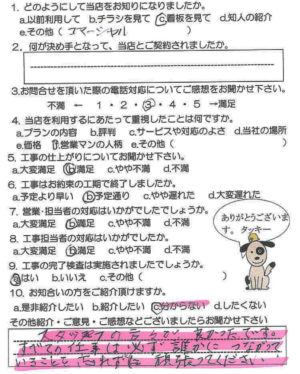 1. どのようにして当店をお知りになりましたか。
a.以前利用して b.チラシを見て c.看板を見て d.知人の紹介
e.その他 ( コマーシャル )
2. 何が決め手となって、当店とご契約されましたか。
3.お問合せを頂いた際の電話対応についてご感想をお聞かせ下さい。
不満 ← 1 ・ 2 ・ 3 ・ 4 ・ 5 →満足
4. 当店を利用するにあたって重視したことは何ですか。
a.プランの内容 b.評判 c.サービスや対応のよさ d.当社の場所
e.価格 f.営業マンの人柄 e.その他 ( )
5. 工事の仕上がりについてお聞かせ下さい。
a.大変満足 b.満足 c.やや不満 d.不満
6. 工事はお約束の工期で終了しましたか。
a.予定より早い b.予定通り c.やや遅れた d.大変遅れた
7. 営業・担当者の対応はいかがでしたでしょうか。
a.大変満足 b.満足 c.やや不満 d.不満
8. 工事担当者の対応はいかがでしたか。
a.大変満足 b.満足 c.やや不満 d.不満
ありがとうございます。タッキー
9. 工事の完了検査は実施されましたでしょうか。
a.はい b.いいえ c.その他 ( )
10. お知合いの方をご紹介頂けますか。
a.是非紹介したい b.紹介したい c.分からない d.したくない
その他紹介・ご意見・ご感想などございましたらお聞かせ下さい
スタッフの
良かったです。
すべての仕事は必ず誰かに つながって
いることを忘れずに 頑張ってください